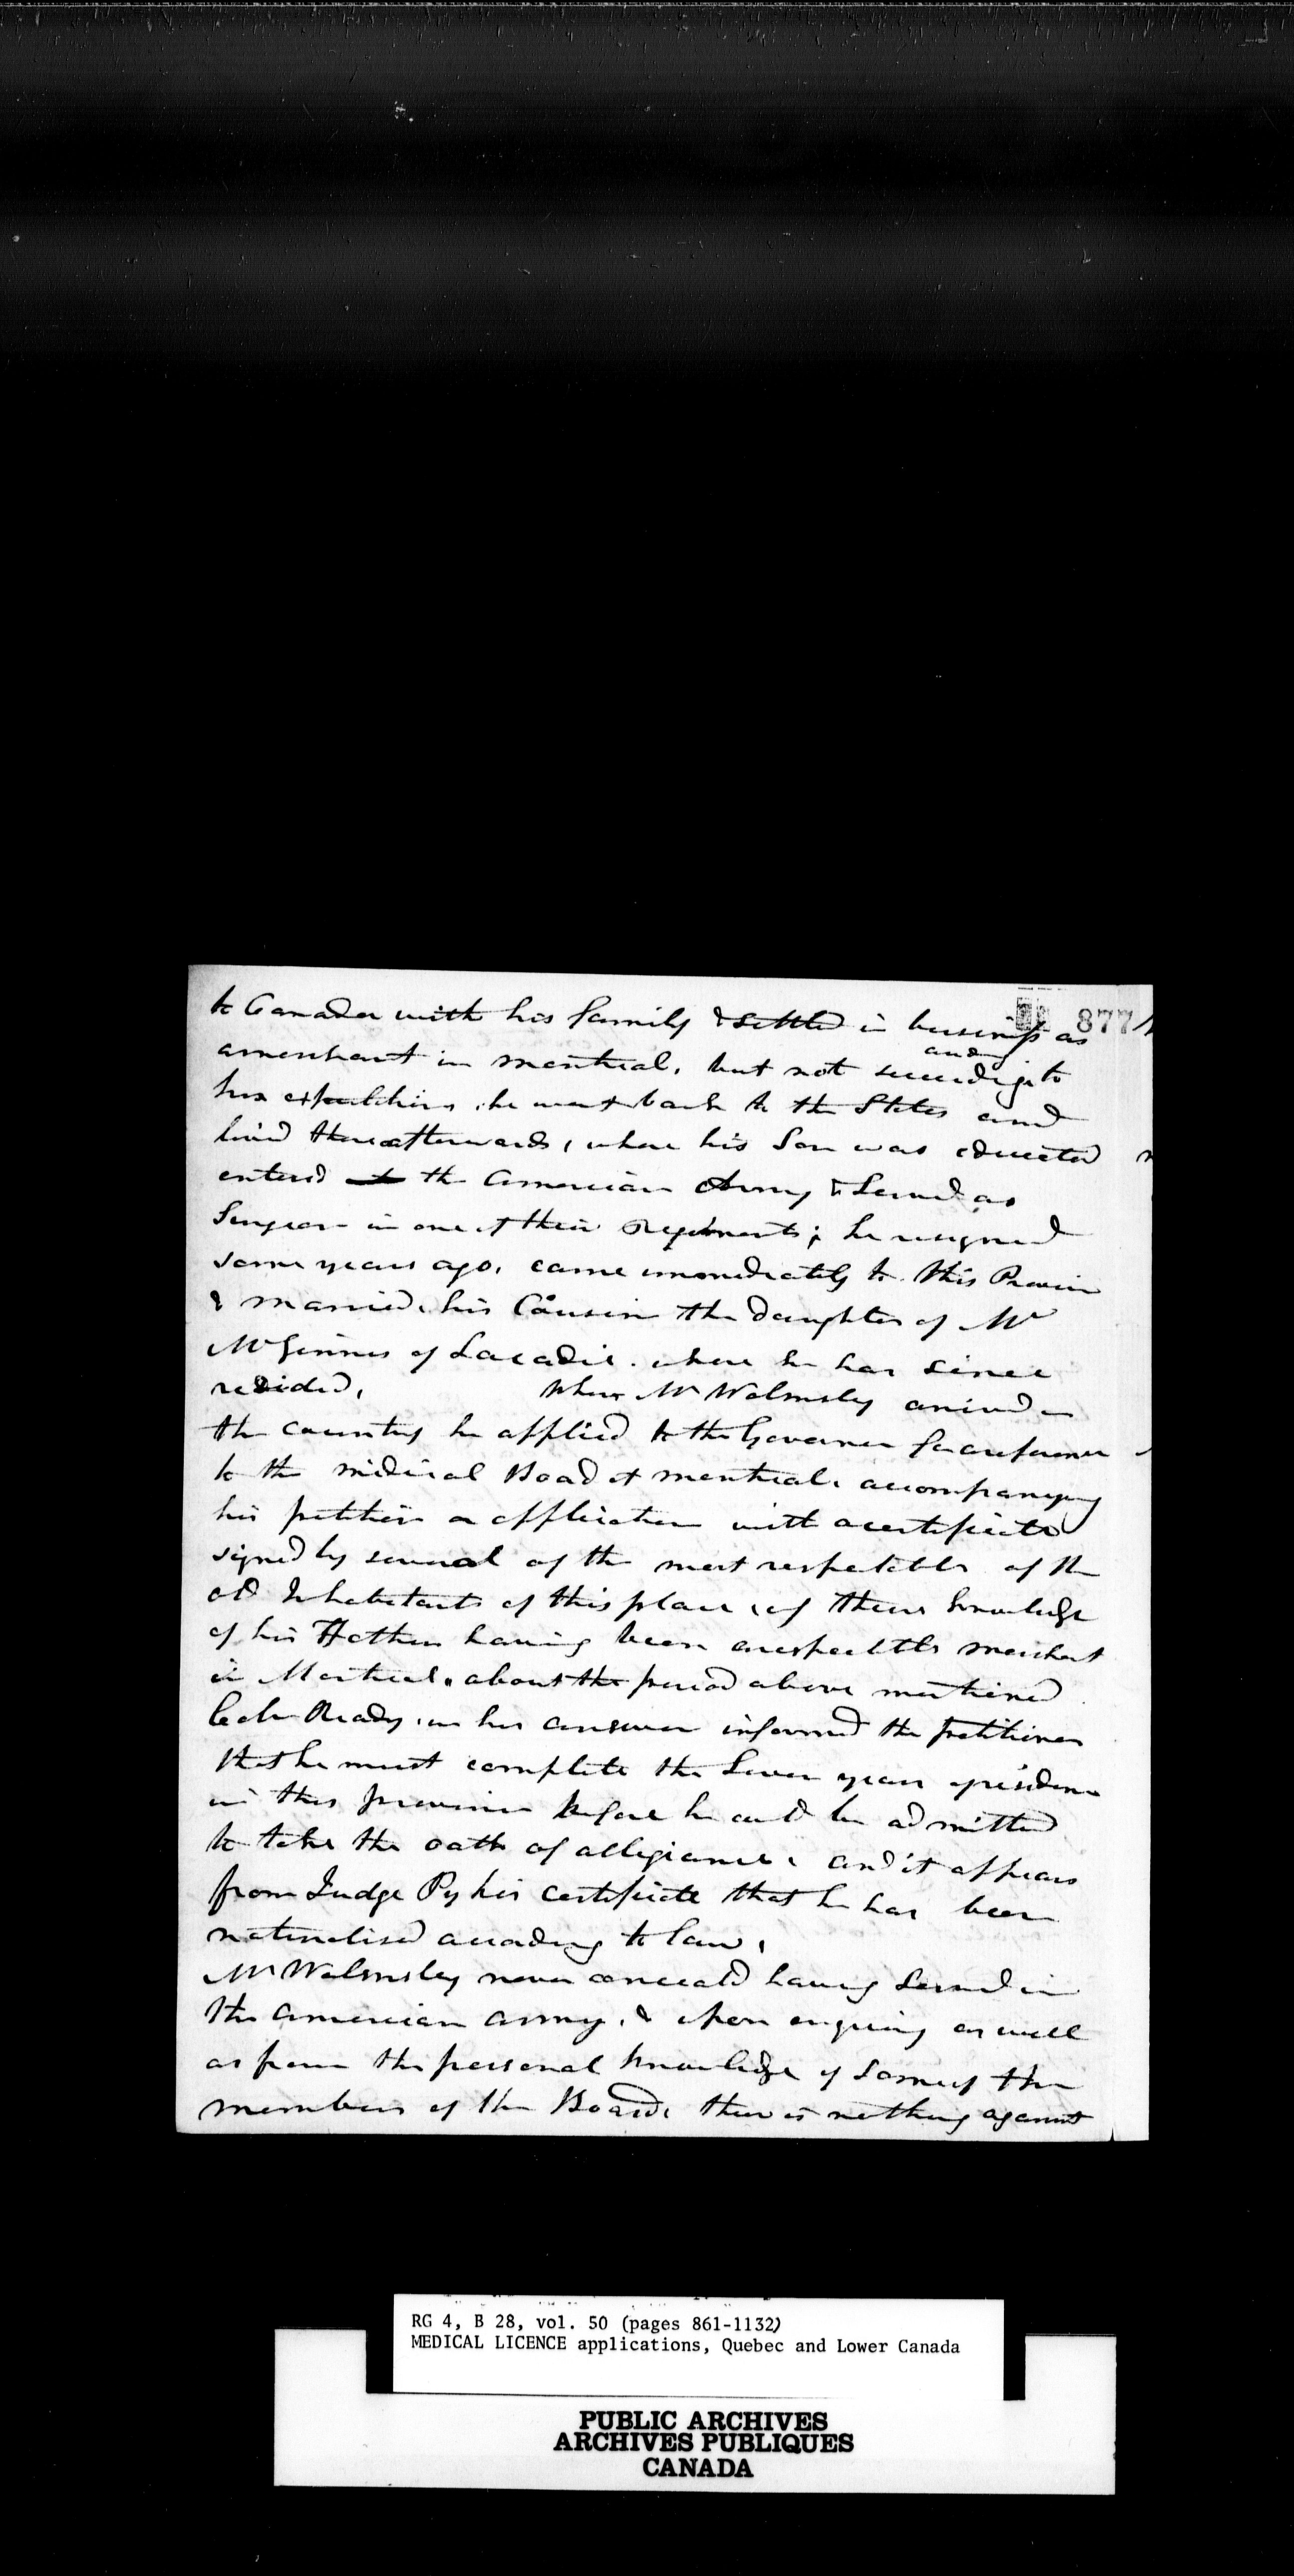 877
to Canada with his family & settled in business as
a merchant in montreal, but not succeeding to
and
his expectations he went back to the States and
lived there afterwards, where his Son was educated
entered the American Army & Served as
Surgeon in one of their Regiments; he resigned
some years ago, came immediately to this Province
& married his Cousin the Daughter of Mr
McGinnes of Lacadie. where he has since
resided, When Mr Walmsley arrived in
the country he applied to the Governor for a reference
to the medical Board at montreal, accompanying
his petition or application with a certificate
signed by several of the most respectable of the
old Inhabitants of this place, of their knowledge
of his Father having been a respectable merchant
in Montreal, about the period above mentioned
Col. Ready, in his answer informed the petitioner
that he must complete the Seven years residence
in this province before he could be admitted
to take the oath of allegiance, and it appears
from Judge Pykes certificate that he has been
naturalised according to law,
Mr Walmsley never conceald having Served in
the American army, & upon enquiry as well
as from the personal knowledge of Some of the
members of the Board, there is nothing against
RG 4, B 28, vol. 50 (pages 861-1132)
MEDICAL LICENCE applications, Quebec and Lower Canada
PUBLIC ARCHIVES
ARCHIVES PUBLIQUES
CANADA